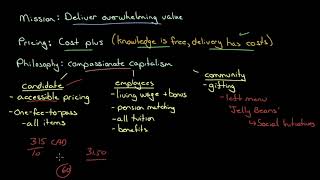 Mission: Deliver overwhelming value
Pricing: Cost plus (knowledge is free, delivery has costs)
Philosophy: compassionate capitalism
Candidate
- accessible pricing
- One-fee-to-pass
- all items
315 CAD
10
31.50
60
employees
- living wage + bonus
- pension matching
- all tuition
- benefits
community
- gifting
- left menu
'Jelly Beans'
↳ Social Initiatives